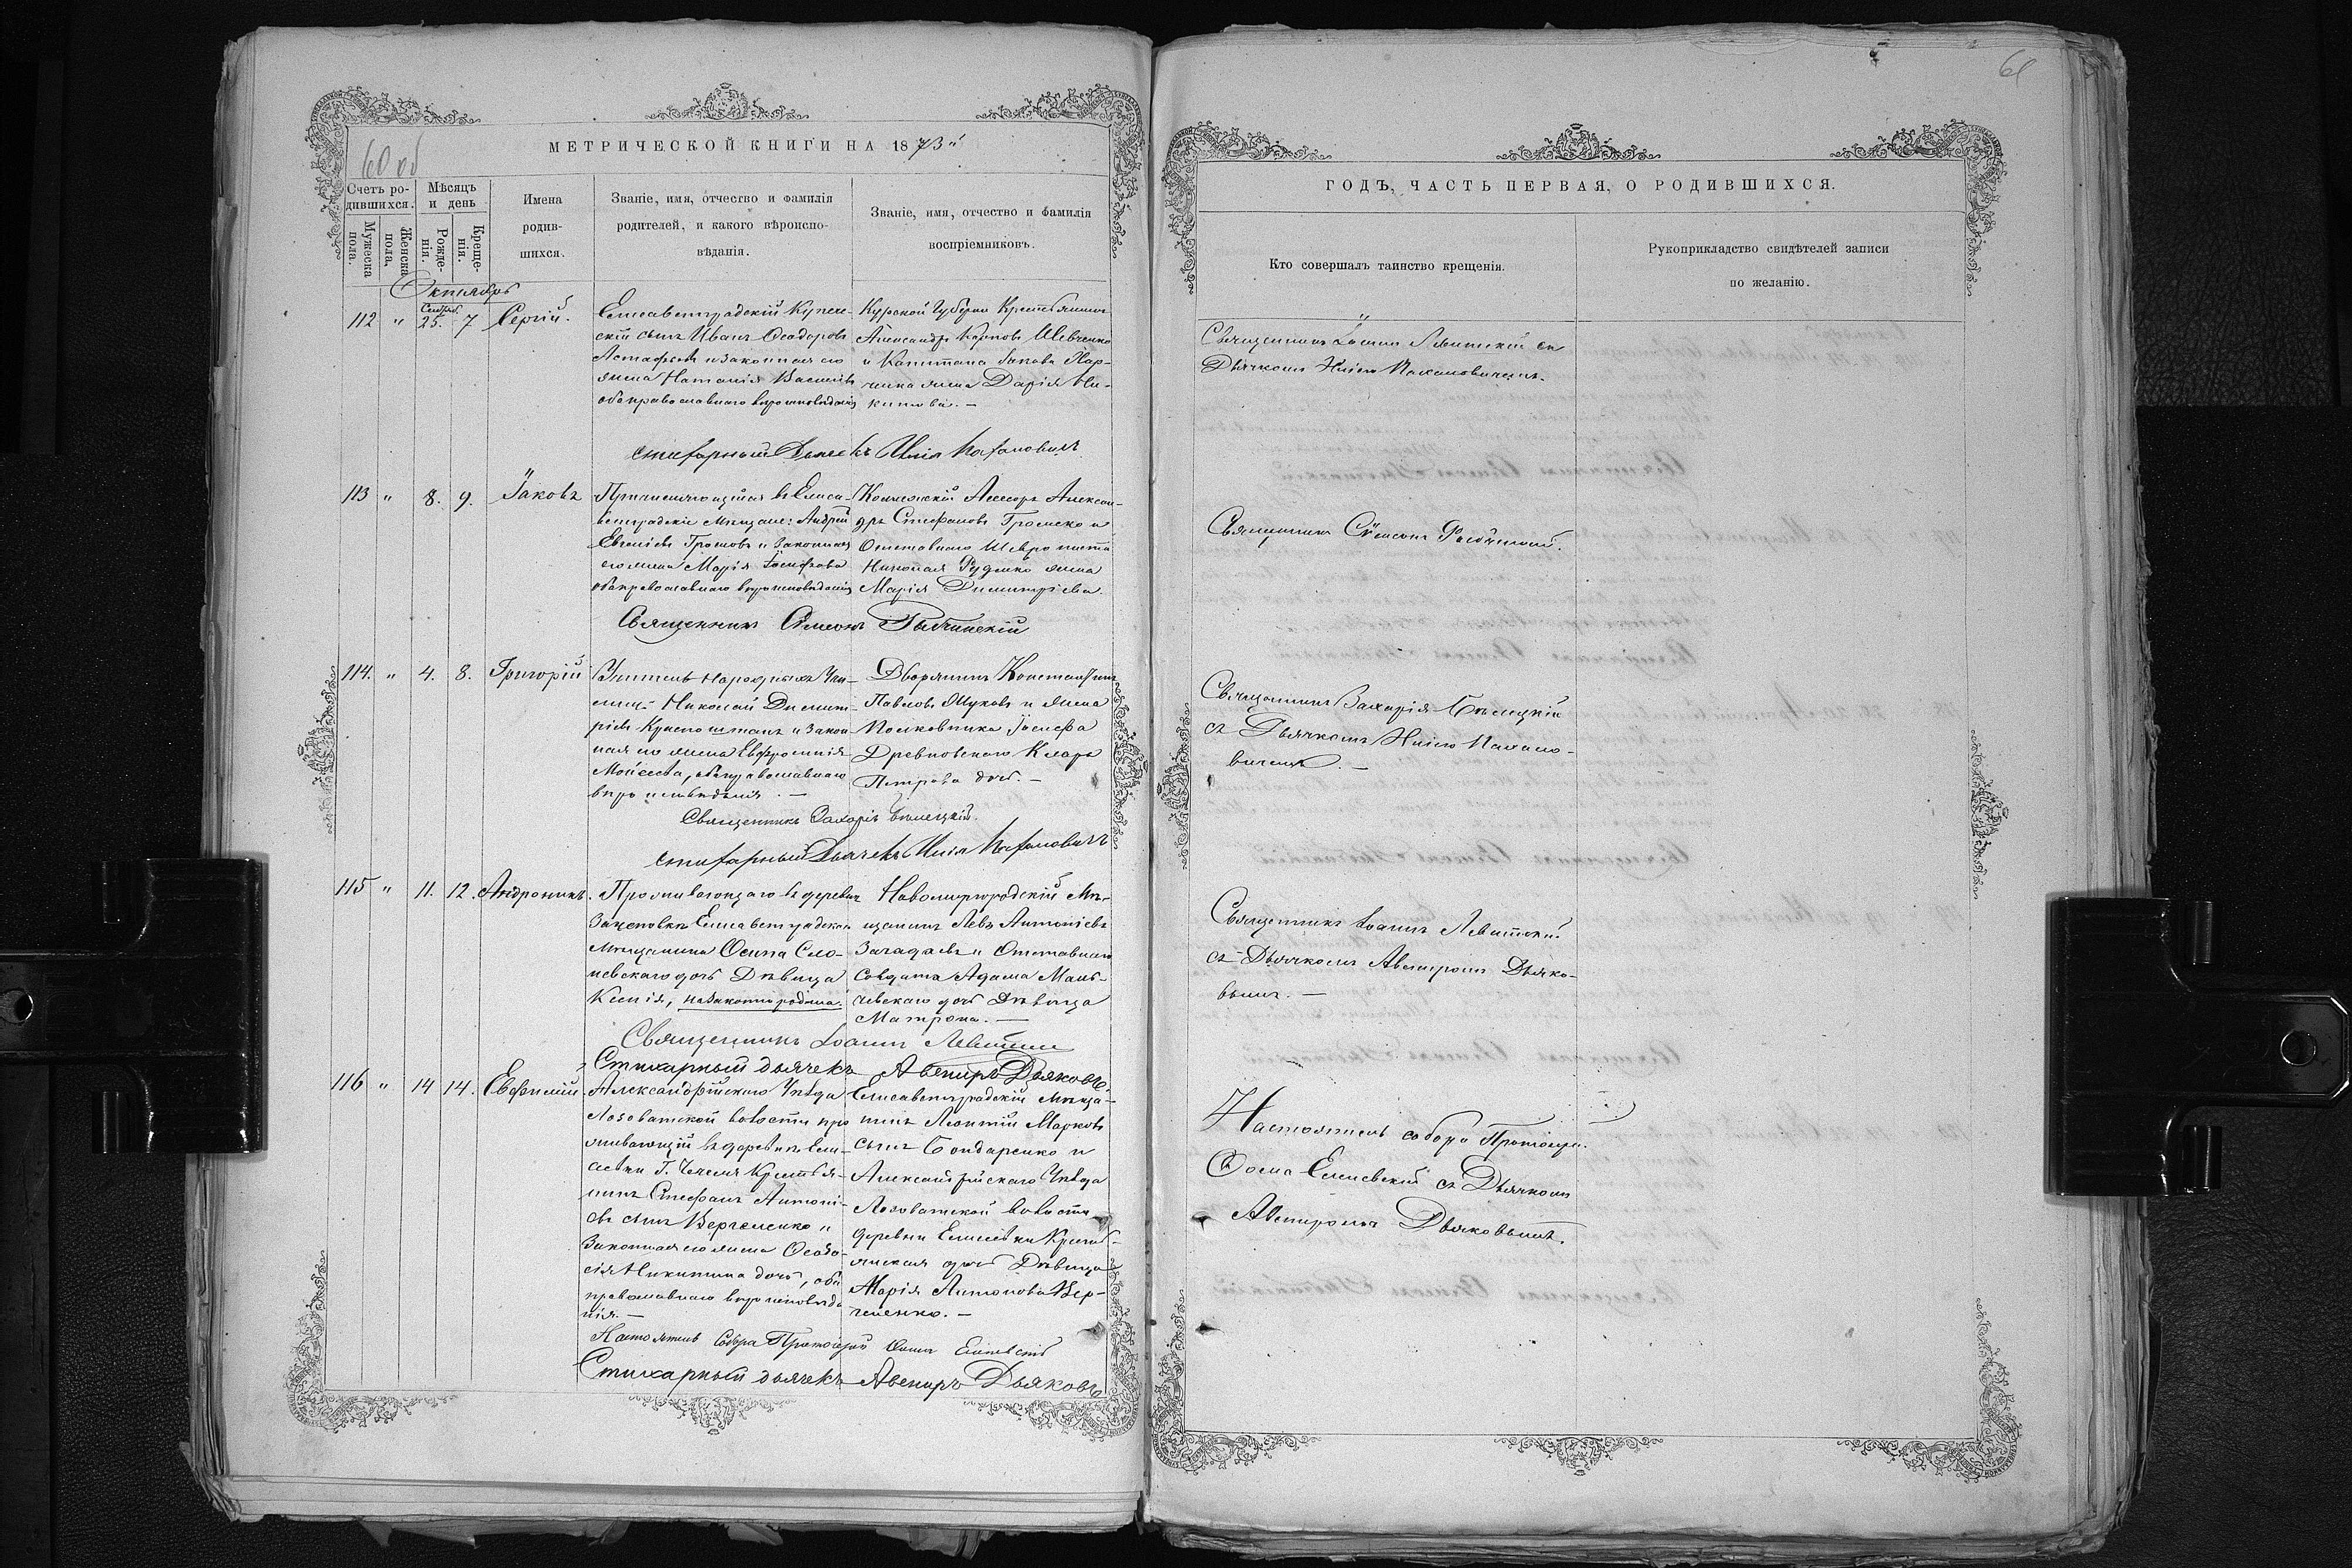 60 об
МЕТРИЧЕСКОЙ КНИГИ НА 1873й
Счетъ ро-
дившихся.
Мужеска
пола.
Женска
пола.
Мѣсяцъ
и день
Рожде-
нія.
Креще-
нія.
Имена
родив-
шихся.
Званіе, имя, отчество и фамилія
родителей, и какого вѣроиспо-
вѣданія.
Званіе, имя, отчество и фамилія
воспріемниковъ.
Октябрь
112 " Сентяб. 25. 7 Сергій.
Елисаветградскій Купече-
скій сынъ Иванъ Ѳеодоровъ
Астафьевъ и законная его
жена Наталія Василіева
оба православнаго вѣроисповѣданія
Курской Губерніи Крестьянинъ
Александръ Карповъ Шевченко
и Капитана Якова
жена Дарія Ни-
китова. —
стихарный Дьячекъ Илія Махановичъ
113 " 8. 9. Іаковъ
Причисляющійся въ Елиса-
ветградскіе мѣщане: Андрей
Евгеніевъ Громовъ и законная
его жена Марія Іосифова
оба православнаго вѣроисповѣданія
Коллежскій Ассесоръ Алексан-
дръ Стефановъ Громеко и
Отставнаго
Николая Руденко жена
Марія Димитріева.
Священникъ Симеонъ Рыбчинскій
114. " 4. 8. Григорій
Учитель Народныхъ Учи-
лищъ Николай Димит-
ріевъ и закон
ная его жена Евфросинія
Моисеева, оба православнаго
вѣроисповѣданія. —
Дворянинъ Константинъ
Павловъ Жуковъ и жена
Полковника Іосифа
Древновскаго Клара
Петрова дочь. —
Священникъ Захарія Бѣлецкій.
стихарный Дьячекъ Илія Махановичъ
115 " 11. 12. Андроникъ.
Проживающаго въ деревни
Елисаветградскаго
мѣщанина Осипа Сло-
невскаго дочь Дѣвица
Ксенія, незаконнорожденъ.
Новомиргородскій Мѣ-
щанинъ Левъ Антоніевъ
и Отставнаго
Солдата Адама Мань-
чевскаго дочь Дѣвица
Матрона. —
Священникъ Іоаннъ Левитскій
Стихарный дьячекъ Авениръ Дьяковъ.
116 " 14 14. Евфимій.
Александрійскаго Уѣзда
Лозоватской волости про
живающій въ деревнѣ Ели-
Крестья-
нинъ Стефанъ Антоні-
евъ сынъ Верченко и
законная его жена Ѳеодо-
сія Никитина дочь, оба
православнаго вѣроисповѣда
нія. —
Елисаветградскій Мѣща-
нинъ Леонтій Марковъ
сынъ Бондаренко и
Александрійскаго Уѣзда
Лозоватской волости
деревни Елисеевки Кресть-
янская дочь Дѣвица
Марія Антонова Вер-
ченко. —
Настоятель Собора Протоіерей Ѳома Еленевскій
Стихарный дьячекъ Авениръ Дьяковъ
61
ГОДЪ, ЧАСТЬ ПЕРВАЯ, О РОДИВШИХСЯ.
Кто совершалъ таинство крещенія.
Рукоприкладство свидѣтелей записи
по желанію.
Священникъ Іоаннъ Левитскій съ
Дьячкомъ Иліею Махановичемъ.
Священникъ Симеонъ Рыбчинскій.
Священникъ Захарія Бѣлецкій
съ Дьячкомъ Иліею Махано-
вичемъ. —
Священникъ Іоаннъ Левитскій
съ Дьячкомъ Авениромъ Дьяко-
вымъ. —
Настоятель собора Протоіерей.
Ѳома Еленевскій съ Дьячкомъ
Авениромъ Дьяковымъ.